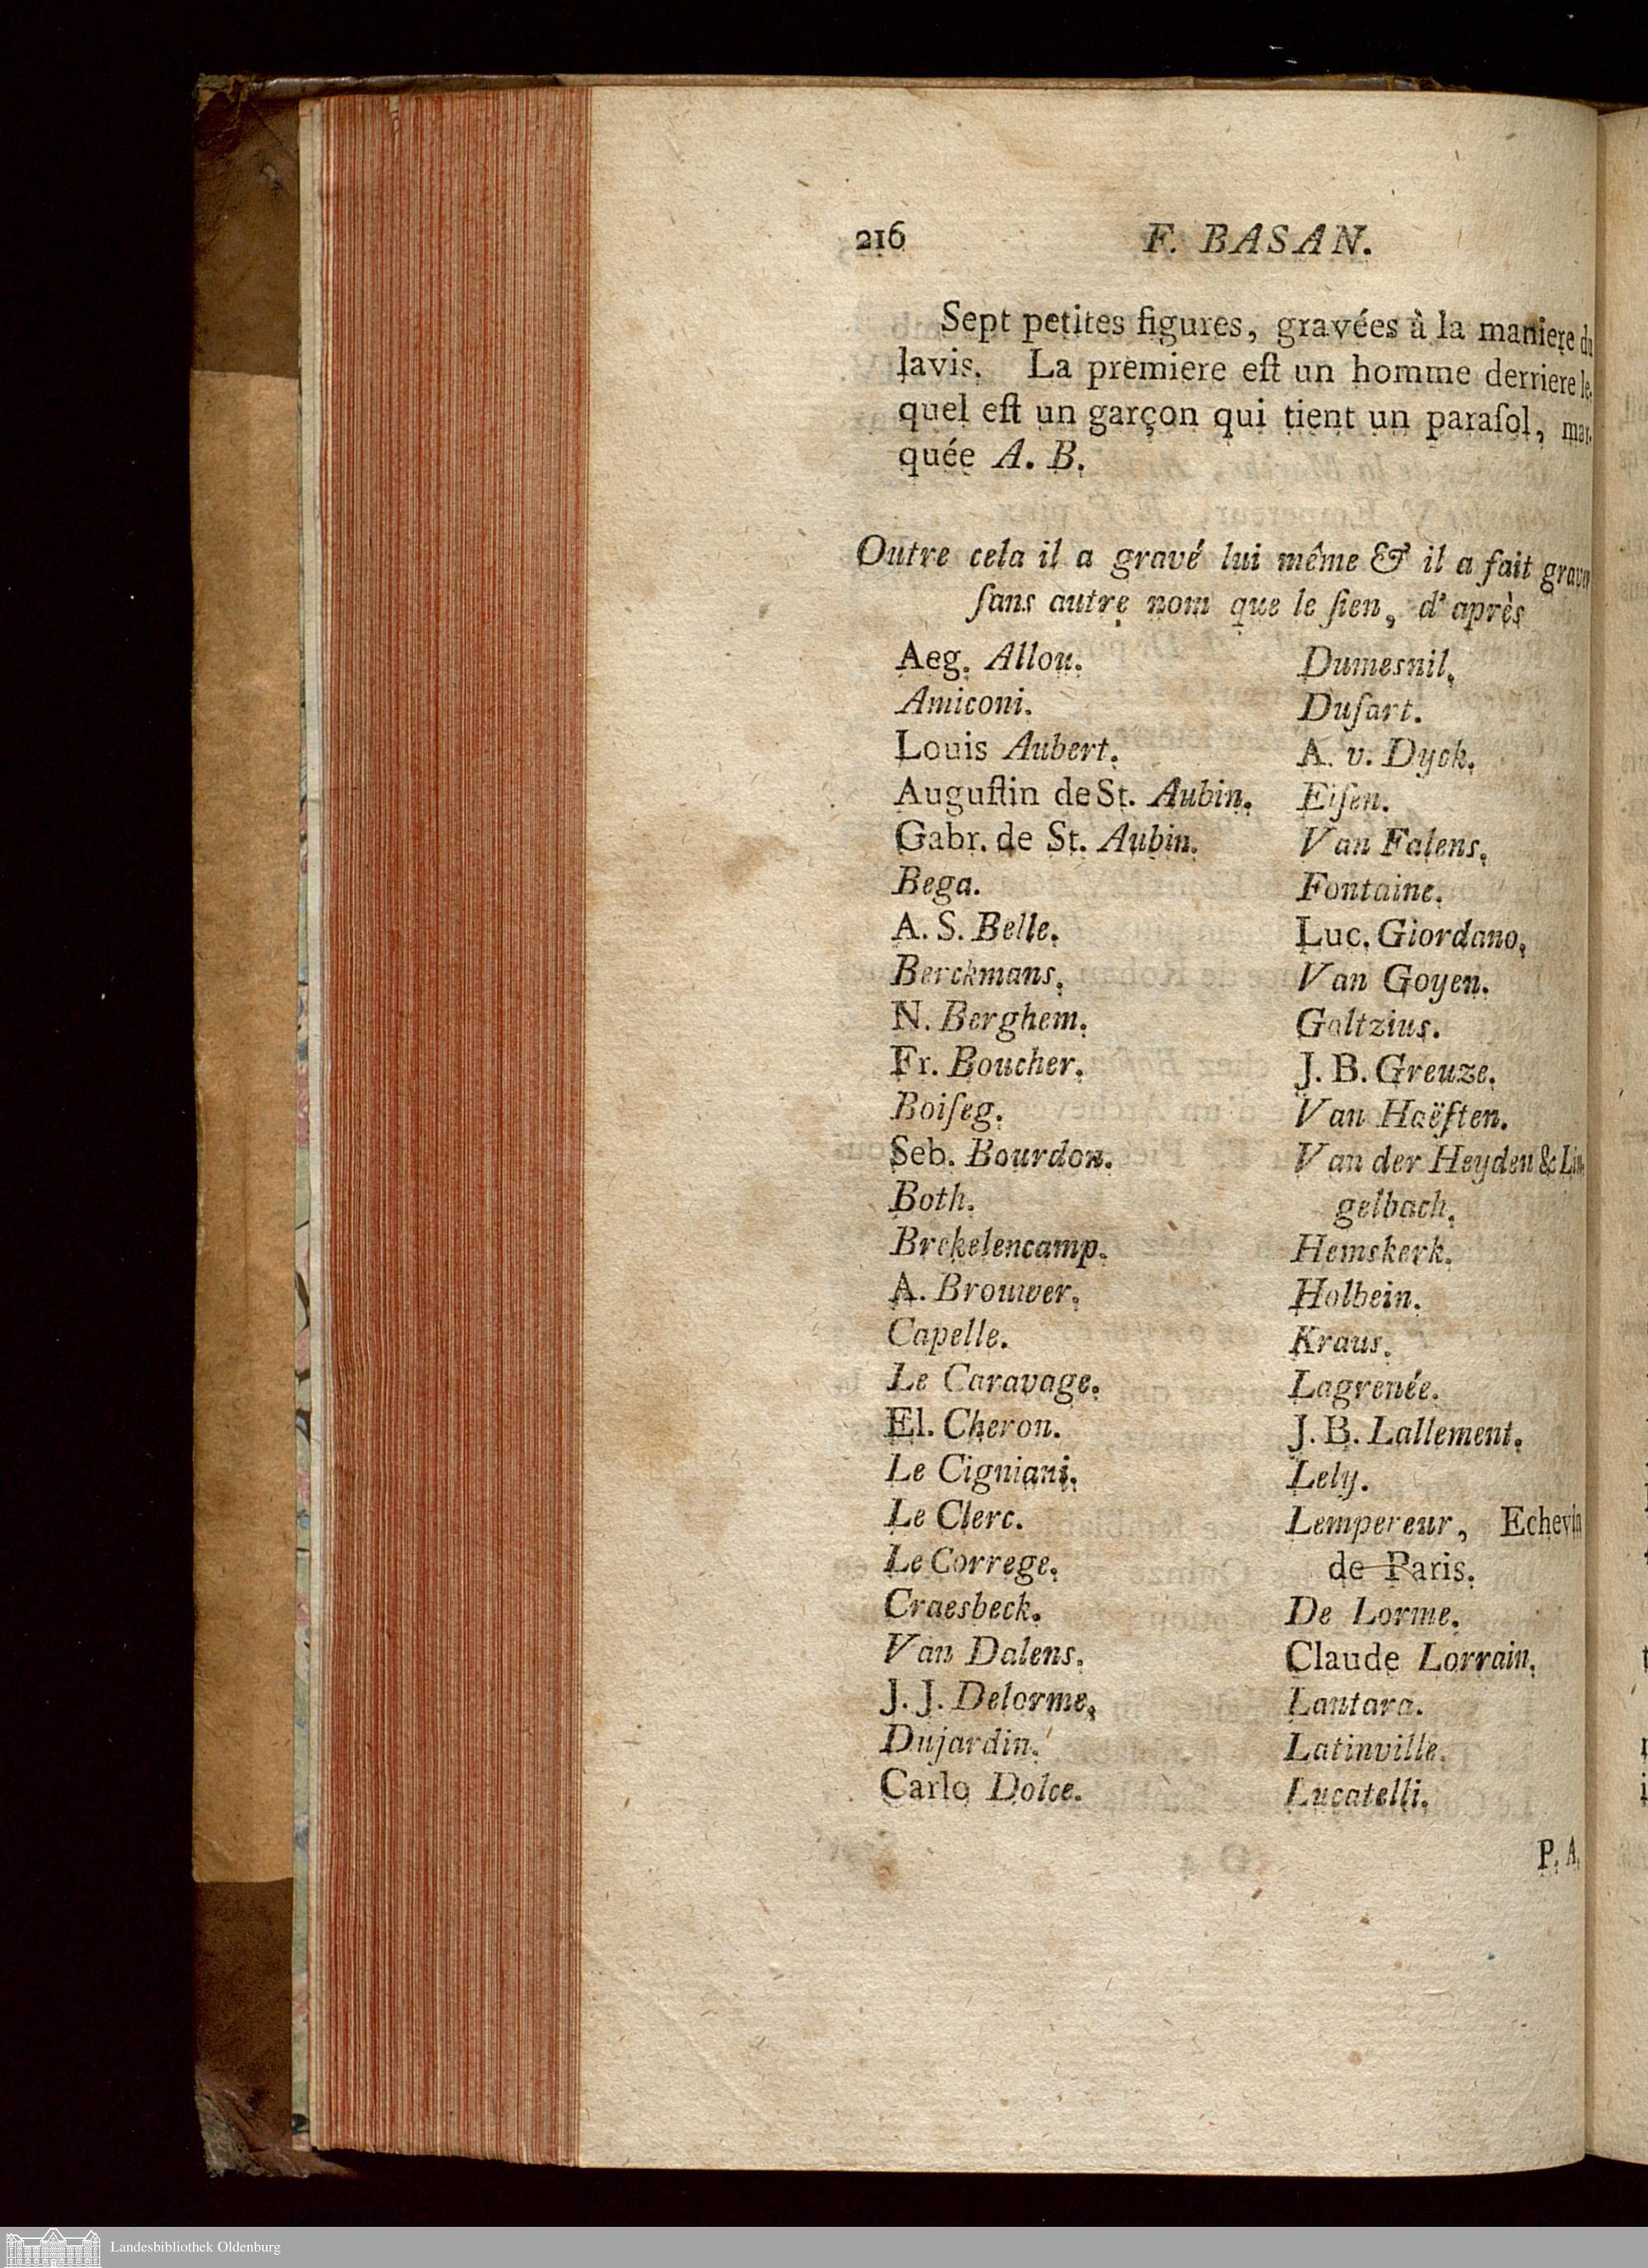 216
F. BASAN.
Sept petites figures, gravées à la maniere du
lavis. La premiere eſt un homme derriere le-
quel eſt un garçon qui tient un paraſol, mar-
quée A. B.
Outre cela il a gravé lui même & il a fait graver
ſans autre nom que le ſien, d'après
Aeg. Allou.
Amiconi.
Louis Aubert.
Auguſtin de St. Aubin.
Gabr. de St. Aubin.
Bega.
A. S. Belle.
Berckmans.
N. Berghem.
Fr. Boucher.
Boiſeg.
Seb. Bourdon.
Both.
Brekelencamp.
A. Brouwer.
Capelle.
Le Caravage.
El. Cheron.
Le Cigniani.
Le Clerc.
Le Correge.
Craesbeck.
Van Dalens.
J. J. Delorme.
Dujardin.
Carlo Dolce.
Dumesnil.
Duſart.
A. v. Dyck.
Eiſen.
Van Falens.
Fontaine.
Luc. Giordano.
Van Goyen.
Goltzius.
J. B. Greuze.
Van Haëften.
Van der Heyden & Lin-
gelbach.
Hemskerk.
Holbein.
Kraus.
Lagrenée.
J. B. Lallement.
Lely.
Lempereur, Echevin
de Paris.
De Lorme.
Claude Lorrain.
Lantara.
Latinville.
Lucatelli.
P. A.
Landesbibliothek Oldenburg